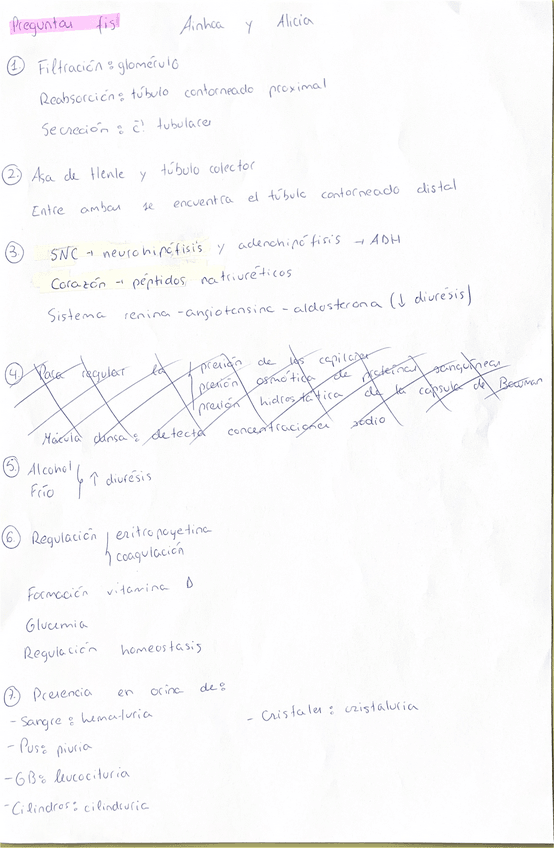 Preguntas fis
Ainhoa y Alicia
1. Filtración: glomérulo
Reabsorción: túbulo contorneado proximal
Secreción: c! tubulares
2. Asa de Henle y túbulo colector
Entre ambas se encuentra el túbulo contorneado distal
3. SNC → neurohipófisis y adenohipófisis → ADH
Corazón → péptidos natriuréticos
Sistema renina-angiotensina-aldosterona (↓ diurésis)
4. Para regular la presión de los capilares
presión osmótica de proteínas sanguíneas
presión hidrostática de la cápsula de Bowman
Mácula densa: detecta concentraciones sodio
5. Alcohol
Frío
↑ diurésis
6. Regulación eritropoyetina
coagulación
Formación vitamina D
Glucemia
Regulación homeostasis
7. Presencia en orina de:
- Sangre: hematuria
- Cristales: cristaluria
- Pus: piuria
- GB: leucocituria
- Cilindros: cilindruria